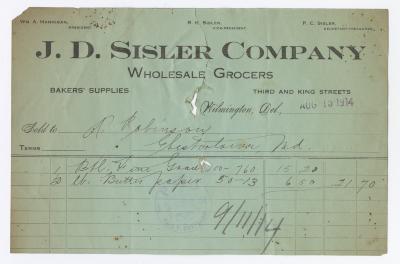 Wm A. Hannigan, PRESIDENT. R. H. Sisler, VICE-PRESIDENT. F. C. Sisler, SECRETARY-TREASURER.
J. D. Sisler Company
Wholesale Grocers
BAKERS' SUPPLIES THIRD AND KING STREETS
Wilmington, Del., AUG 19 1914
Sold to R. Robinson
Terms Chestertown Md.
1 Bbl. Fine Gran 200-760 15 20
2 lb. Butter paper 50-13 6 50 21 70
9/11/14